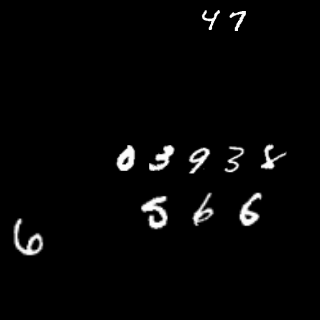 47
03938
566
6